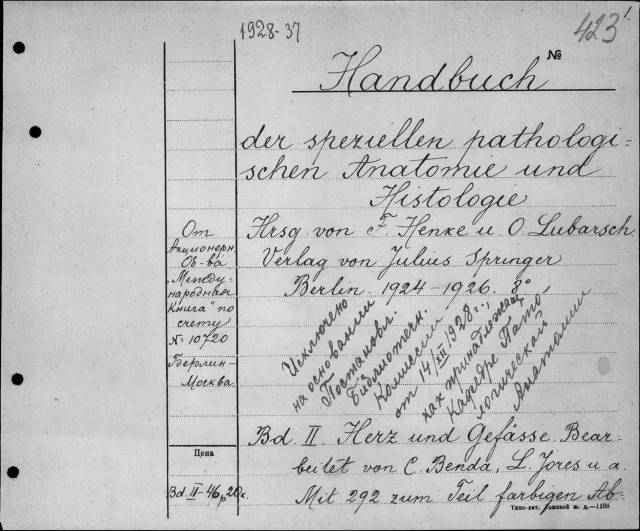 1928-37
423
№
Handbuch
der speziellen pathologi-
schen Anatomie und
Histologie
Hrsg. von F. Henke u. O. Lubarsch
Verlag von Julius Springer
Berlin. 1924-1926. 8°
От
Акционерн.
Об-ва
"Между-
народная
Книга" по
счету
№ 10720
Берлин-
Москва.
Исключено
на основании
Постановл.
Библиотечн.
Комиссии
от 14/XII 1928 г.,
как принадлежащ.
Кафедре Пато-
логической
Анатомии
Bd. II. Herz und Gefässe. Bear-
beitet von C. Benda, L. Jores u. a.
Mit 292 zum Teil farbigen Ab-
Цена
Bd. II-46р.20к.
Типо-лит. Томской ж. д.—1188